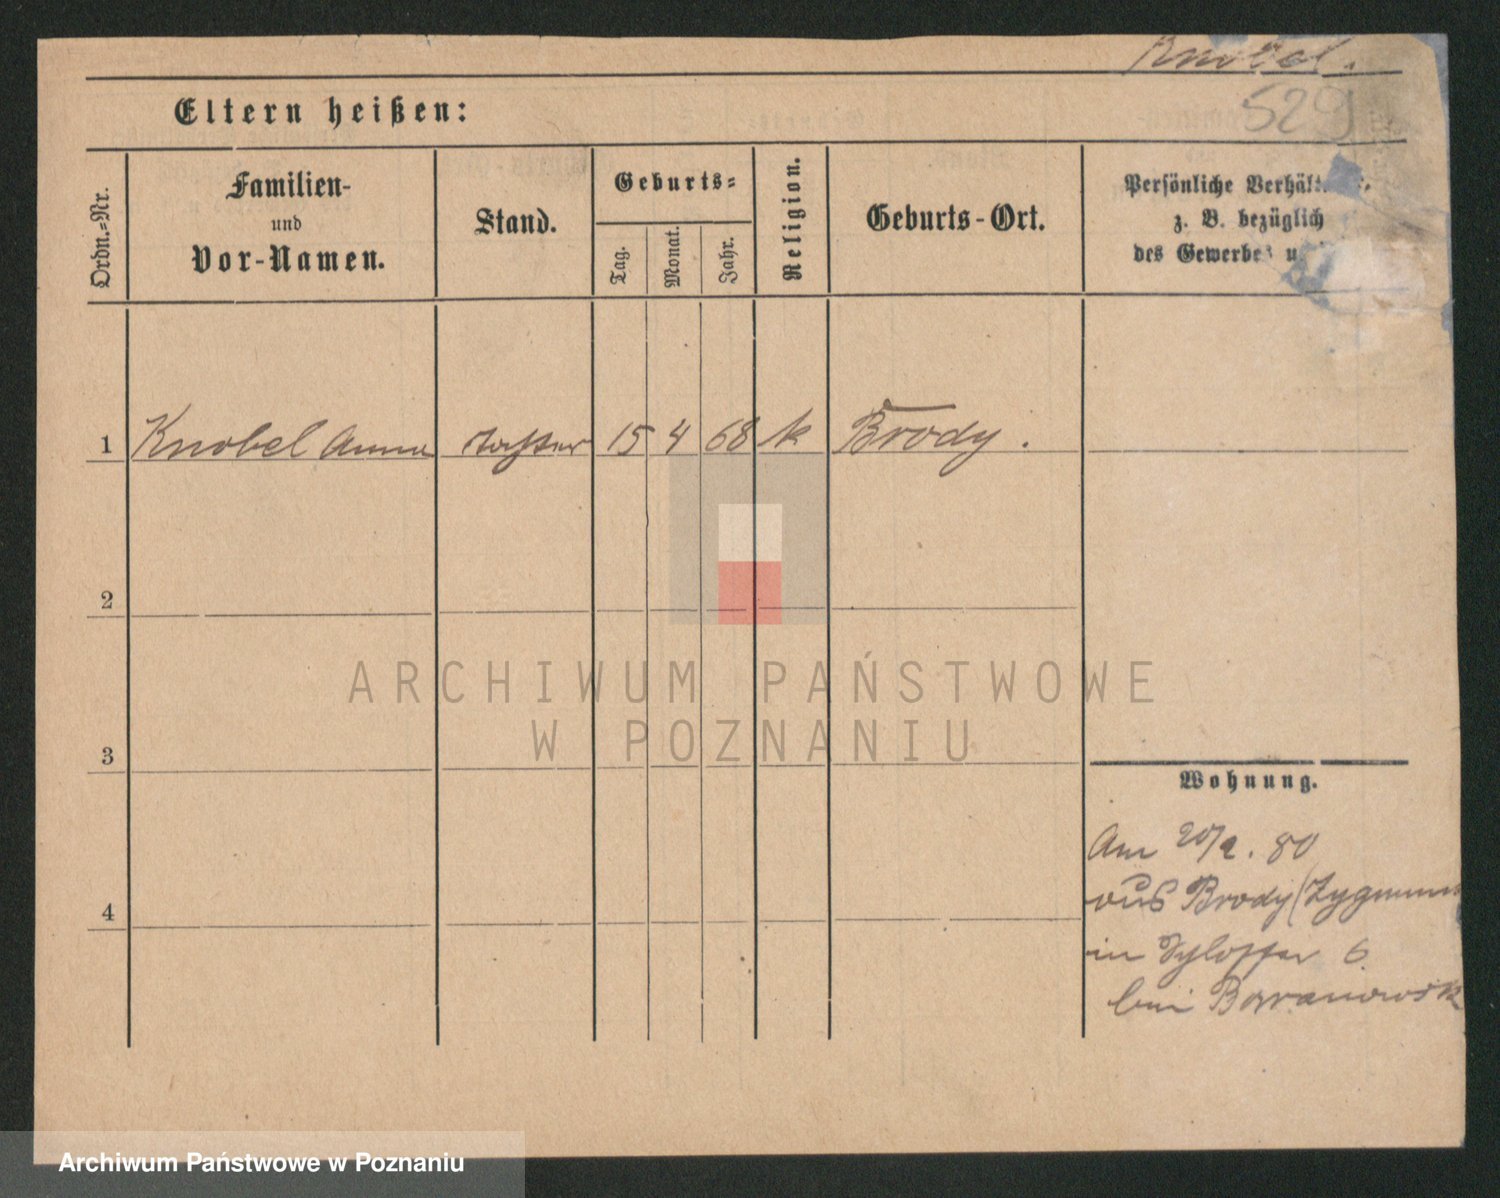 Knobel.
Eltern heißen:
529
Ordn.=Nr.
Familien-
und
Vor-Namen.
Stand.
Geburts=
Tag.
Monat.
Jahr.
Religion.
Geburts-Ort.
Persönliche
z. B. bezüglich
des Gewerbes
1 Knobel Anna 15 4 68 k Brody.
2
3
4
Wohnung.
Am 80
aus Brody (Zygmunt
in 6
bei Baranowsk
ARCHIWUM PAŃSTWOWE
W POZNANIU
Archiwum Państwowe w Poznaniu